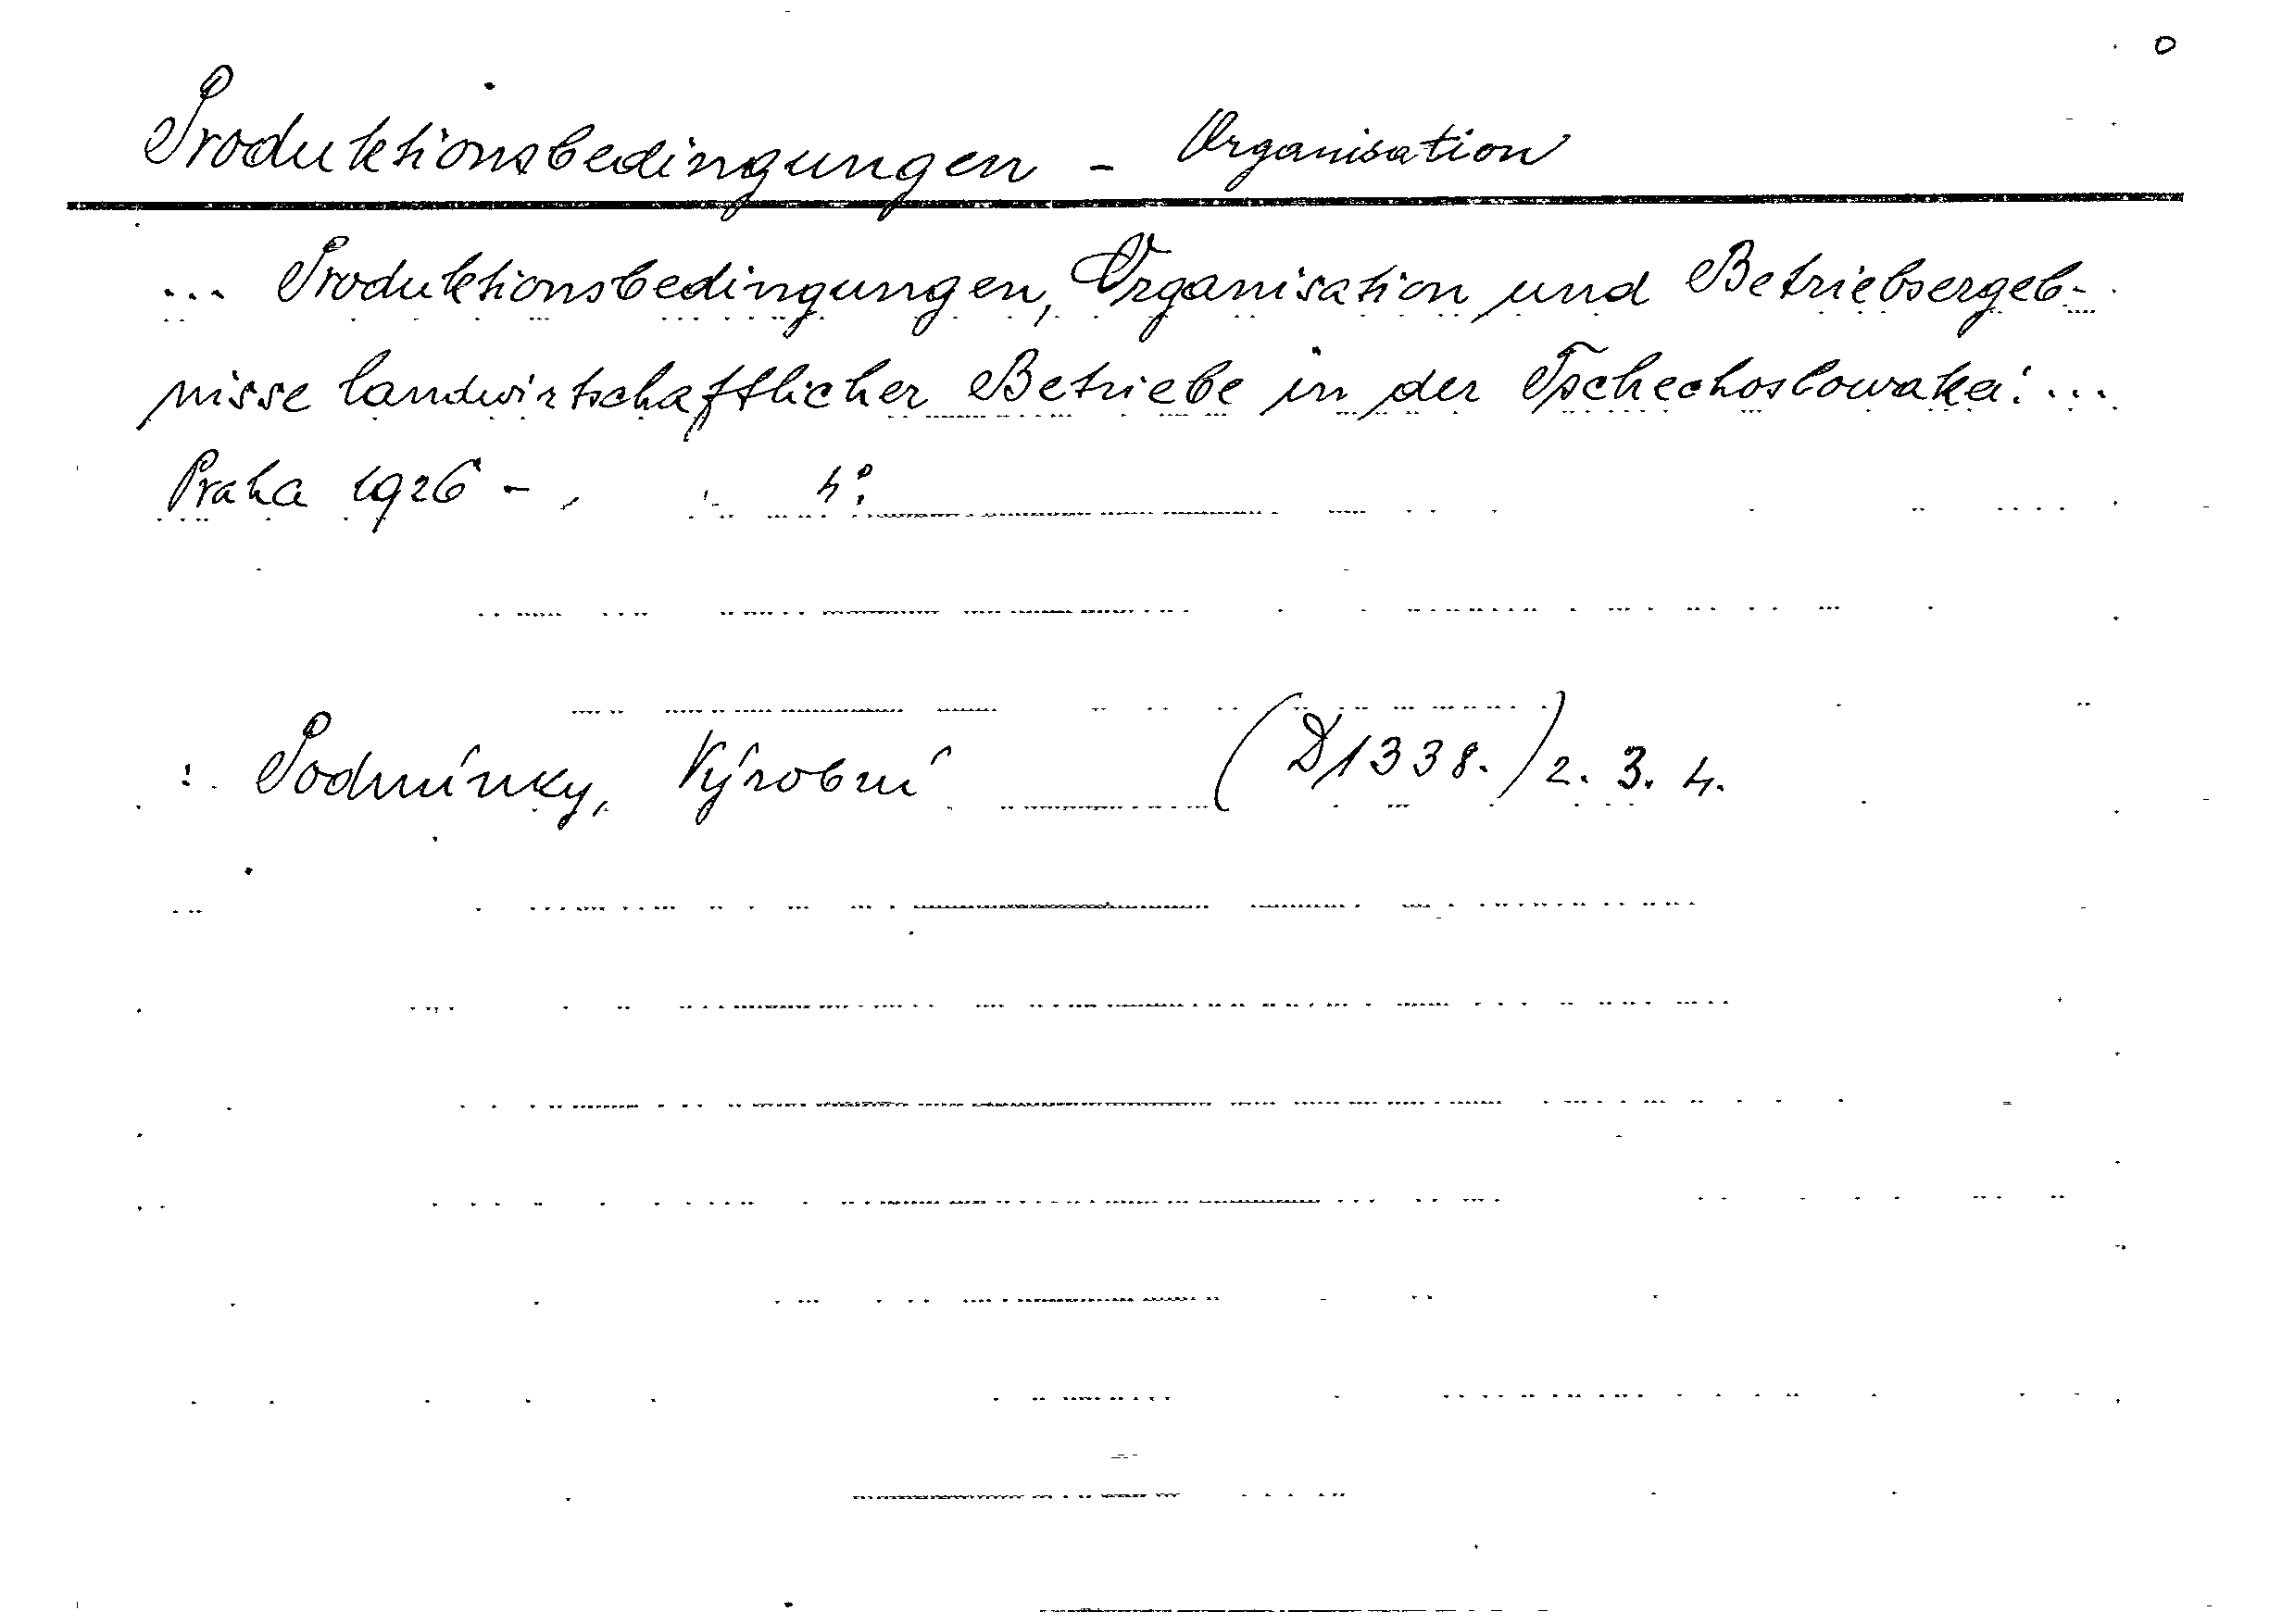 Produktionsbedingungen - Organisation
... Produktionsbedingungen, Organisation und Betriebsergeb-
nisse landwirtschaftlicher Betriebe in der Tschechoslowakei. ...
Praha 1926 - , 4°.
: Podmínky, Výrobní (D1338.) 2. 3. 4.